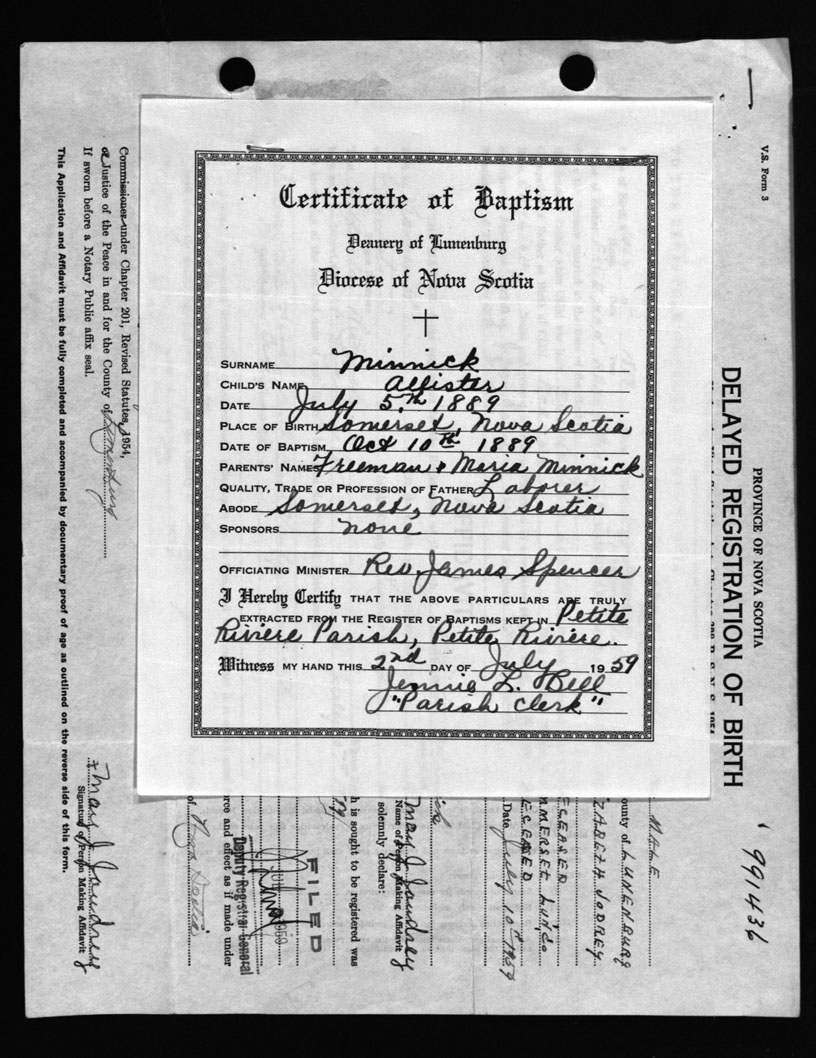 Certificate of Baptism
Deanery of Lunenburg
Diocese of Nova Scotia
SURNAME Minnick
CHILD'S NAME Allister
DATE July 5th 1889
PLACE OF BIRTH Somerset, Nova Scotia
DATE OF BAPTISM Oct 10th 1889
PARENTS' NAMES Freeman & Maria Minnick
QUALITY, TRADE OR PROFESSION OF FATHER Laborer
ABODE Somerset, Nova Scotia
SPONSORS none
OFFICIATING MINISTER Rev James Spencer
I Hereby Certify THAT THE ABOVE PARTICULARS ARE TRULY
EXTRACTED FROM THE REGISTER OF BAPTISMS KEPT IN Petite
Riviere Parish, Petite Riviere.
Witness MY HAND THIS 2nd DAY OF July 1959
Jennie L. Bell
"Parish Clerk"
V.S. Form 3
PROVINCE OF NOVA SCOTIA
DELAYED REGISTRATION OF BIRTH
991436
MALE
ounty of LUNENBURG
ZABETH JODREY
ECEASED
MERSET LUN. CO.
ECEASED
Date July 10th 1959
May J. Jaudrey
Name of Person Making Affidavit
solemnly declare:
h is sought to be registered was
FILED
1959
Deputy Registrar General
rce and effect as if made under
of Nova Scotia
Commissioner under Chapter 201, Revised Statutes, 1954,
a Justice of the Peace in and for the County of Lunenburg
If sworn before a Notary Public affix seal.
May J. Jaudrey
Signature of Person Making Affidavit
This Application and Affidavit must be fully completed and accompanied by documentary proof of age as outlined on the reverse side of this form.